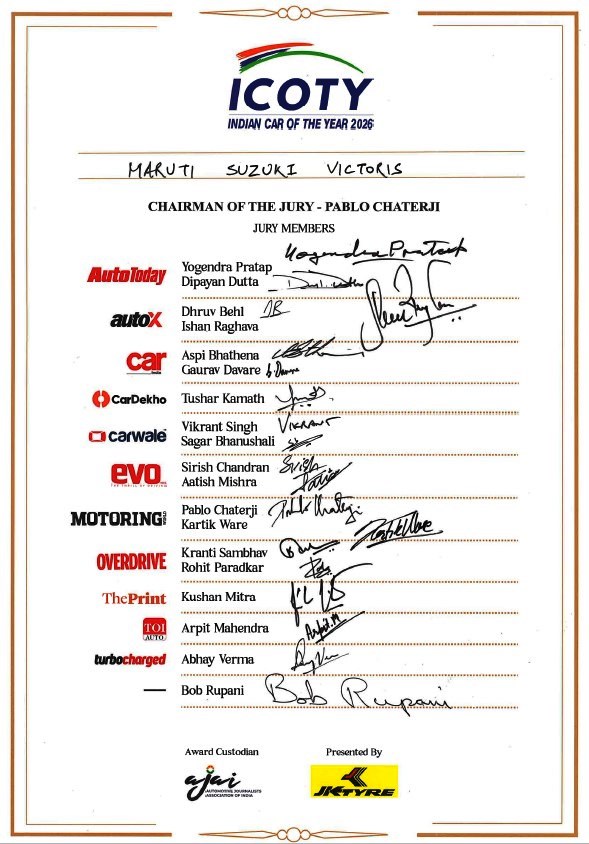 ICOTY
INDIAN CAR OF THE YEAR 2026
MARUTI SUZUKI VICTORIS
CHAIRMAN OF THE JURY - PABLO CHATERJI
JURY MEMBERS
Yogendra Pratap
AutoToday
Yogendra Pratap
Dipayan Dutta
autoX
Dhruv Behl DB
Ishan Raghava
car
India
Aspi Bhathena
Gaurav Davare
CarDekho
Tushar Kamath
carwale
Vikrant Singh VIKRANT
Sagar Bhanushali
evo
Sirish Chandran Sirish
Aatish Mishra
MOTORING WORLD
Pablo Chaterji Pablo Chaterji
Kartik Ware Kartik Ware
OVERDRIVE
Kranti Sambhav
Rohit Paradkar
ThePrint
Kushan Mitra
TOI
AUTO
Arpit Mahendra Arpit.M
turbocharged
Abhay Verma
— Bob Rupani Bob Rupani
Award Custodian
ajai
AUTOMOTIVE JOURNALISTS
ASSOCIATION OF INDIA
Presented By
JK TYRE